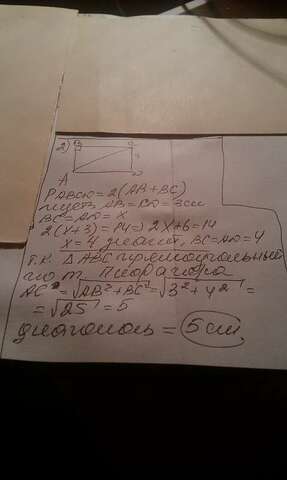 2)
A
PABCD=2(AB+BC)
пусть AB=CD=3см
BC=AD=x
2(x+3)=14=) 2x+6=14
x=4 значит, BC=AD=4
т.к. ΔABC прямоугольный
по т. Пифагора
AC=√AB²+BC²=√3²+42=
=√25=5
диагональ=5см